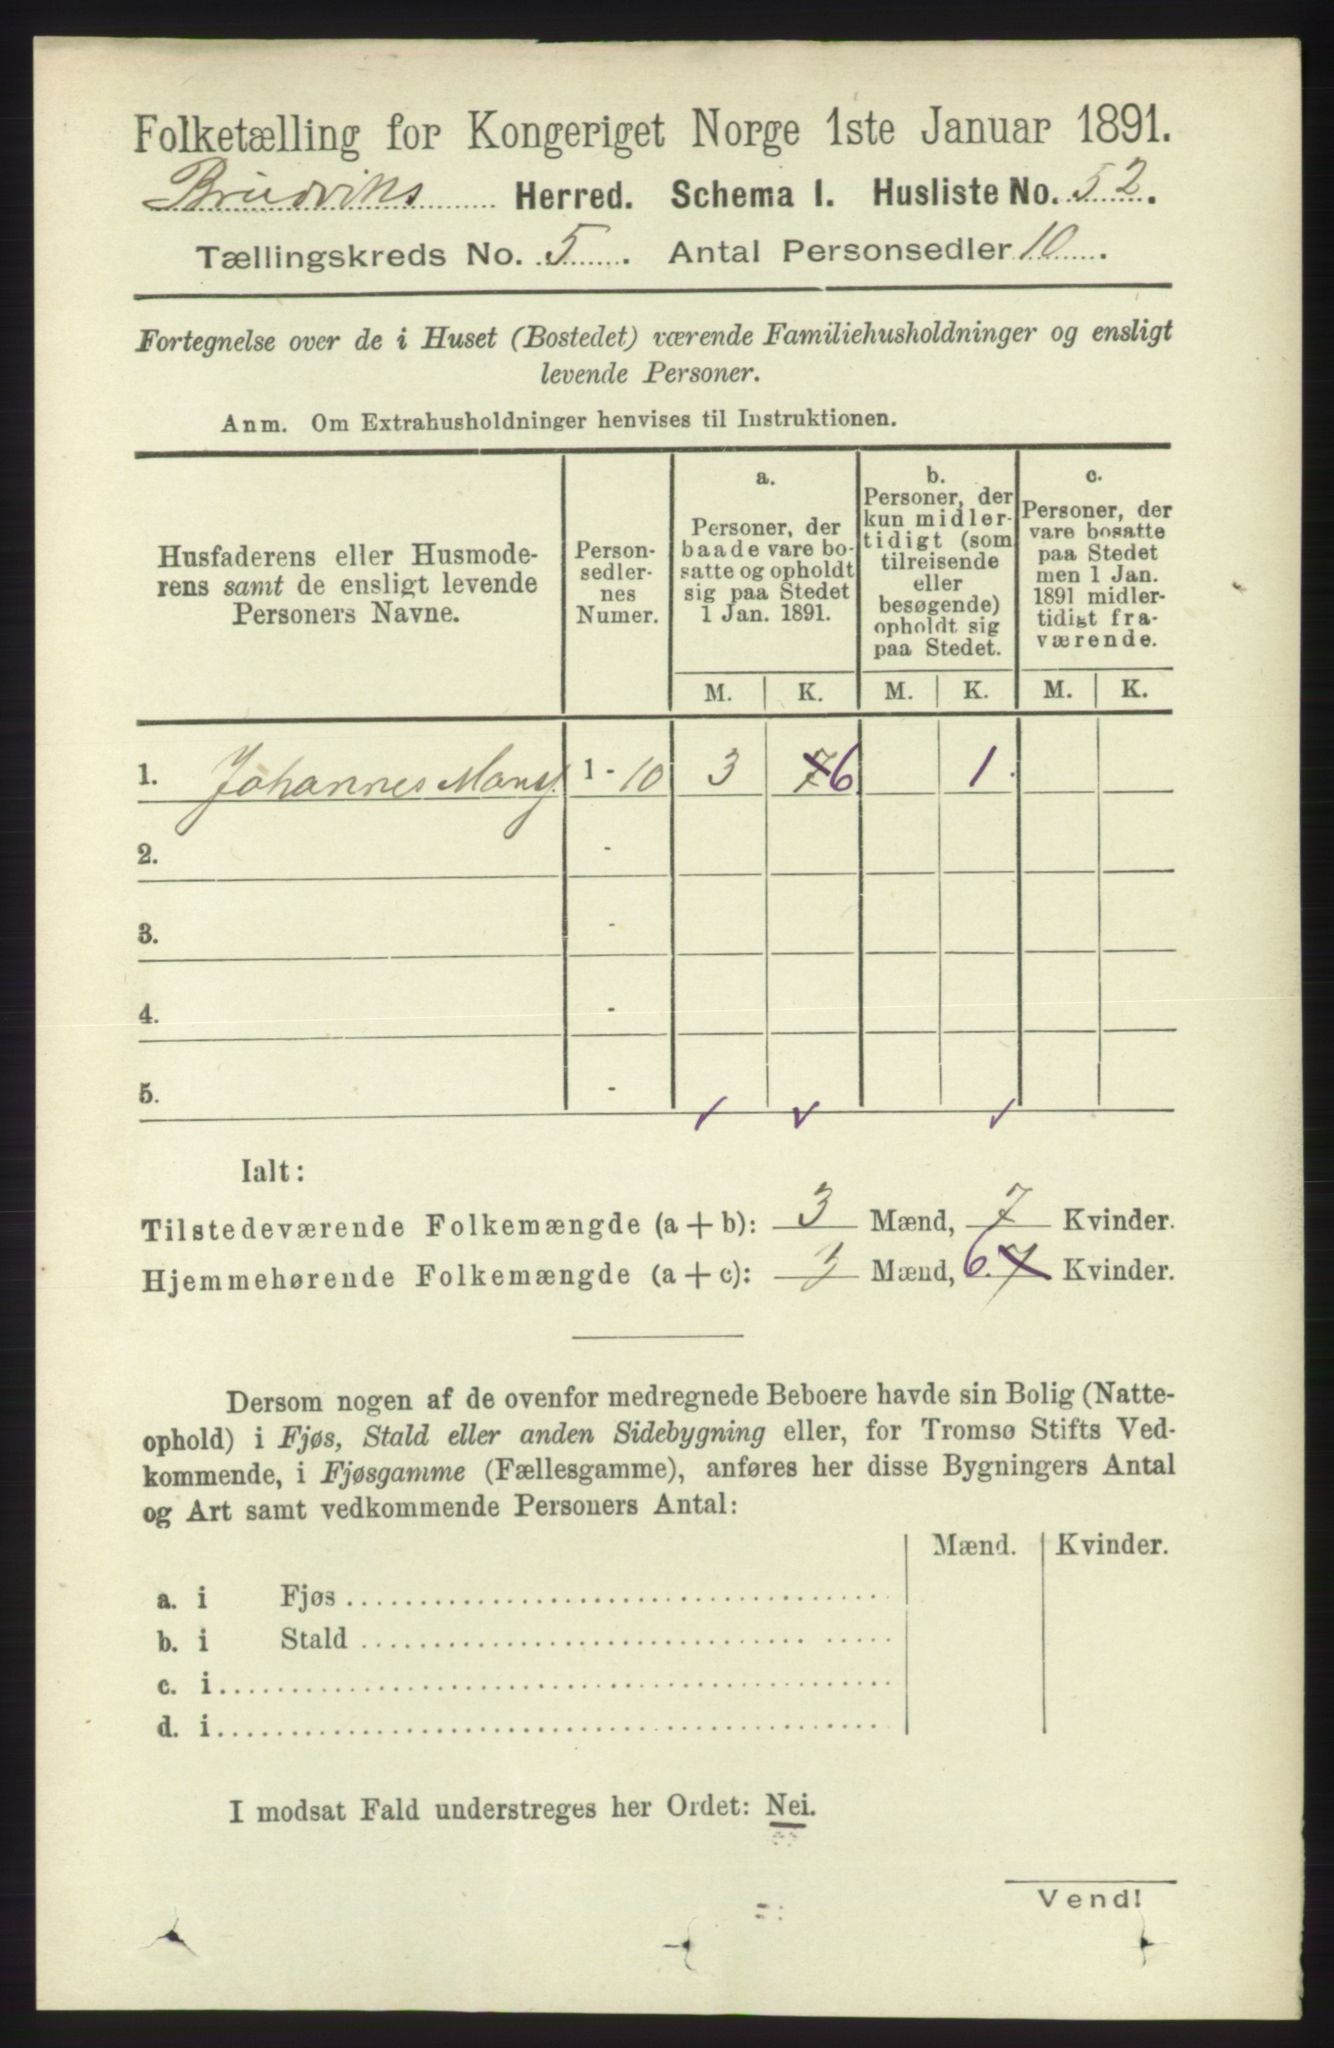 Folketælling for Kongeriget Norge 1ste Januar 1891.
Bruviks Herred. Schema I. Husliste No. 52.
Tællingskreds No. 5. Antal Personsedler 10.
Fortegnelse over de i Huset (Bostedet) værende Familiehusholdninger og ensligt
levende Personer.
Anm. Om Extrahusholdninger henvises til Instruktionen.
Husfaderens eller Husmode-
rens samt de ensligt levende
Personers Navne.
Person-
sedler-
nes
Numer.
a.
Personer, der
baade vare bo-
satte og opholdt
sig paa Stedet
1 Jan. 1891.
b.
Personer, der
kun midler-
tidigt (som
tilreisende
eller
besøgende)
opholdt sig
paa Stedet.
c.
Personer, der
vare bosatte
paa Stedet
men 1 Jan.
1891 midler-
tidigt fra-
værende.
M. K. M. K. M. K.
1. Johannes 1 - 10 3 7 6 1.
2. -
3. -
4. -
5. -
Ialt:
Tilstedeværende Folkemængde (a + b): 3 Mænd, 7 Kvinder.
Hjemmehørende Folkemængde (a + c): 3 Mænd, 6. 7 Kvinder.
Dersom nogen af de ovenfor medregnede Beboere havde sin Bolig (Natte-
ophold) i Fjøs, Stald eller anden Sidebygning eller, for Tromsø Stifts Ved-
kommende, i Fjøsgamme (Fællesgamme), anføres her disse Bygningers Antal
og Art samt vedkommende Personers Antal:
Mænd. Kvinder.
a. i Fjøs
b. i Stald
c. i
d. i
I modsat Fald understreges her Ordet: Nei.
Vend!